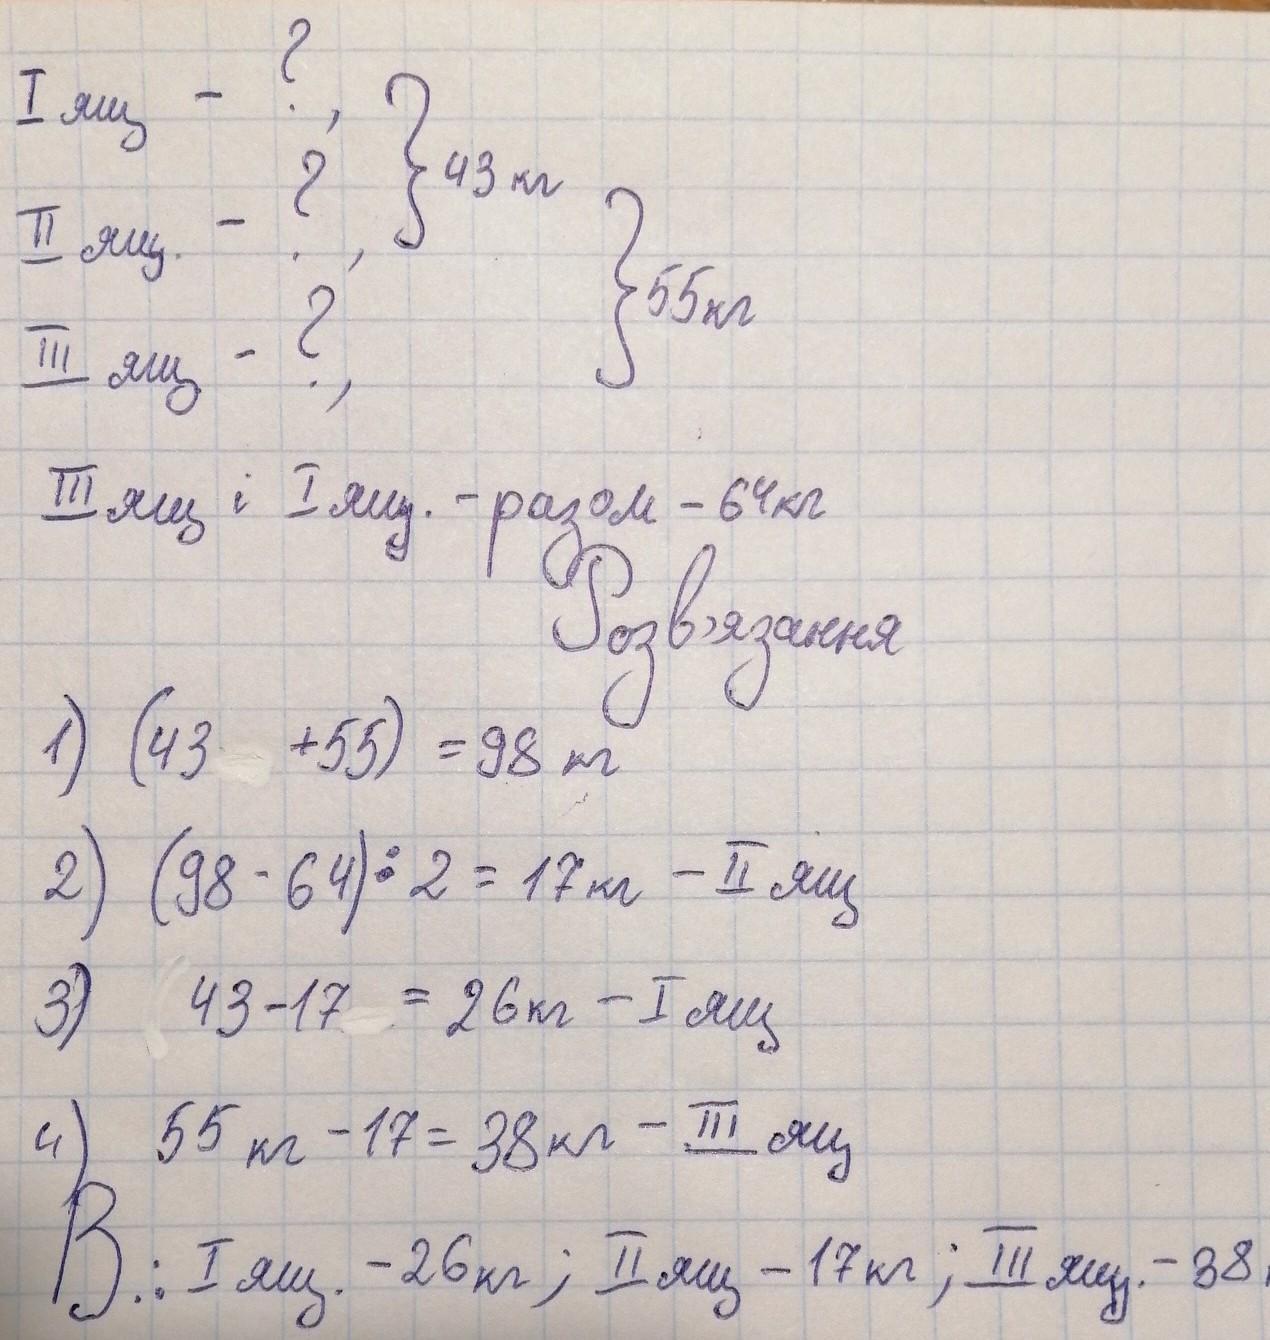 I ящ - ?,
43 кг
II ящ. - ?,
55кг
III ящ - ?,
III ящ і I ящ. - разом - 64кг
Розв'язання
1) (43 +55) = 98 кг
2) (98 - 64) : 2 = 17кг - II ящ
3) 43-17 = 26кг - I ящ
4) 55 кг - 17 = 38кг - III ящ
В.: I ящ. - 26кг; II ящ - 17кг; III ящ. - 38